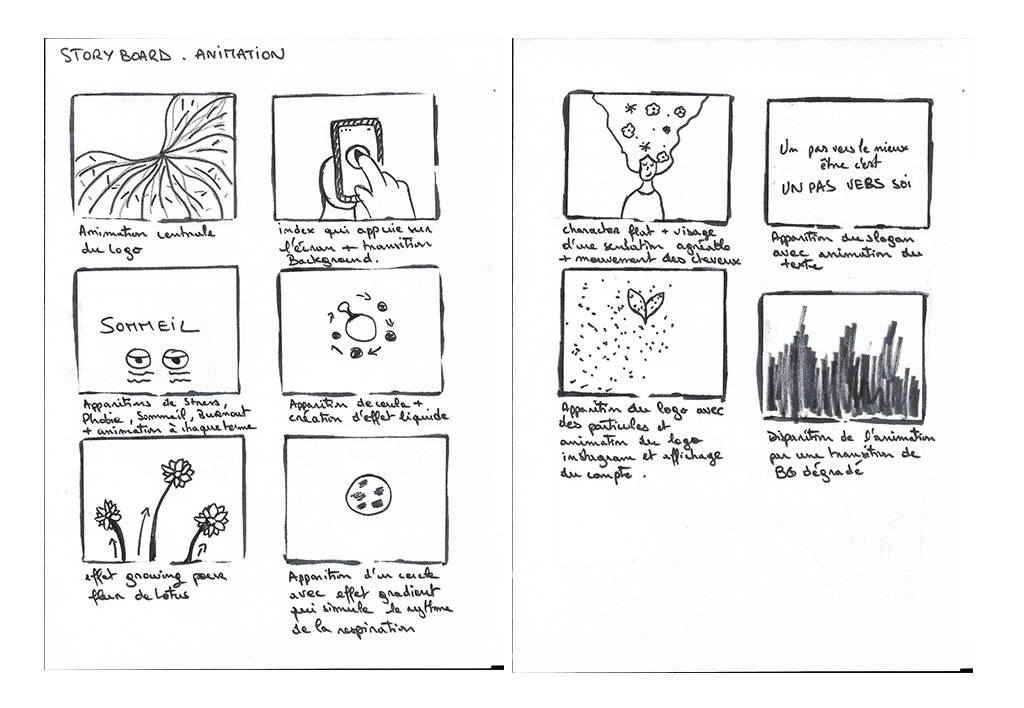 STORYBOARD . ANIMATION
Animation centrale
du logo
index qui appuie sur
l'écran + transition
Background.
SOMMEIL
Apparitions de Stress,
Phobie, Sommeil, Burnout
+ animation à chaque terme
Apparition de cercle +
création d'effet liquide
effet growing pour
fleur de Lotus
Apparition d'un cercle
avec effet gradient
qui simule le rythme
de la respiration
character flat + visage
d'une sensation agréable
+ mouvement des cheveux
Un pas vers le mieux
être c'est
UN PAS VERS SOI
Apparition du slogan
avec animation du
texte
Apparition du logo avec
des particules et
animation du logo
instagram et affichage
du compte .
Disparition de l'animation
par une transition de
BG dégradé